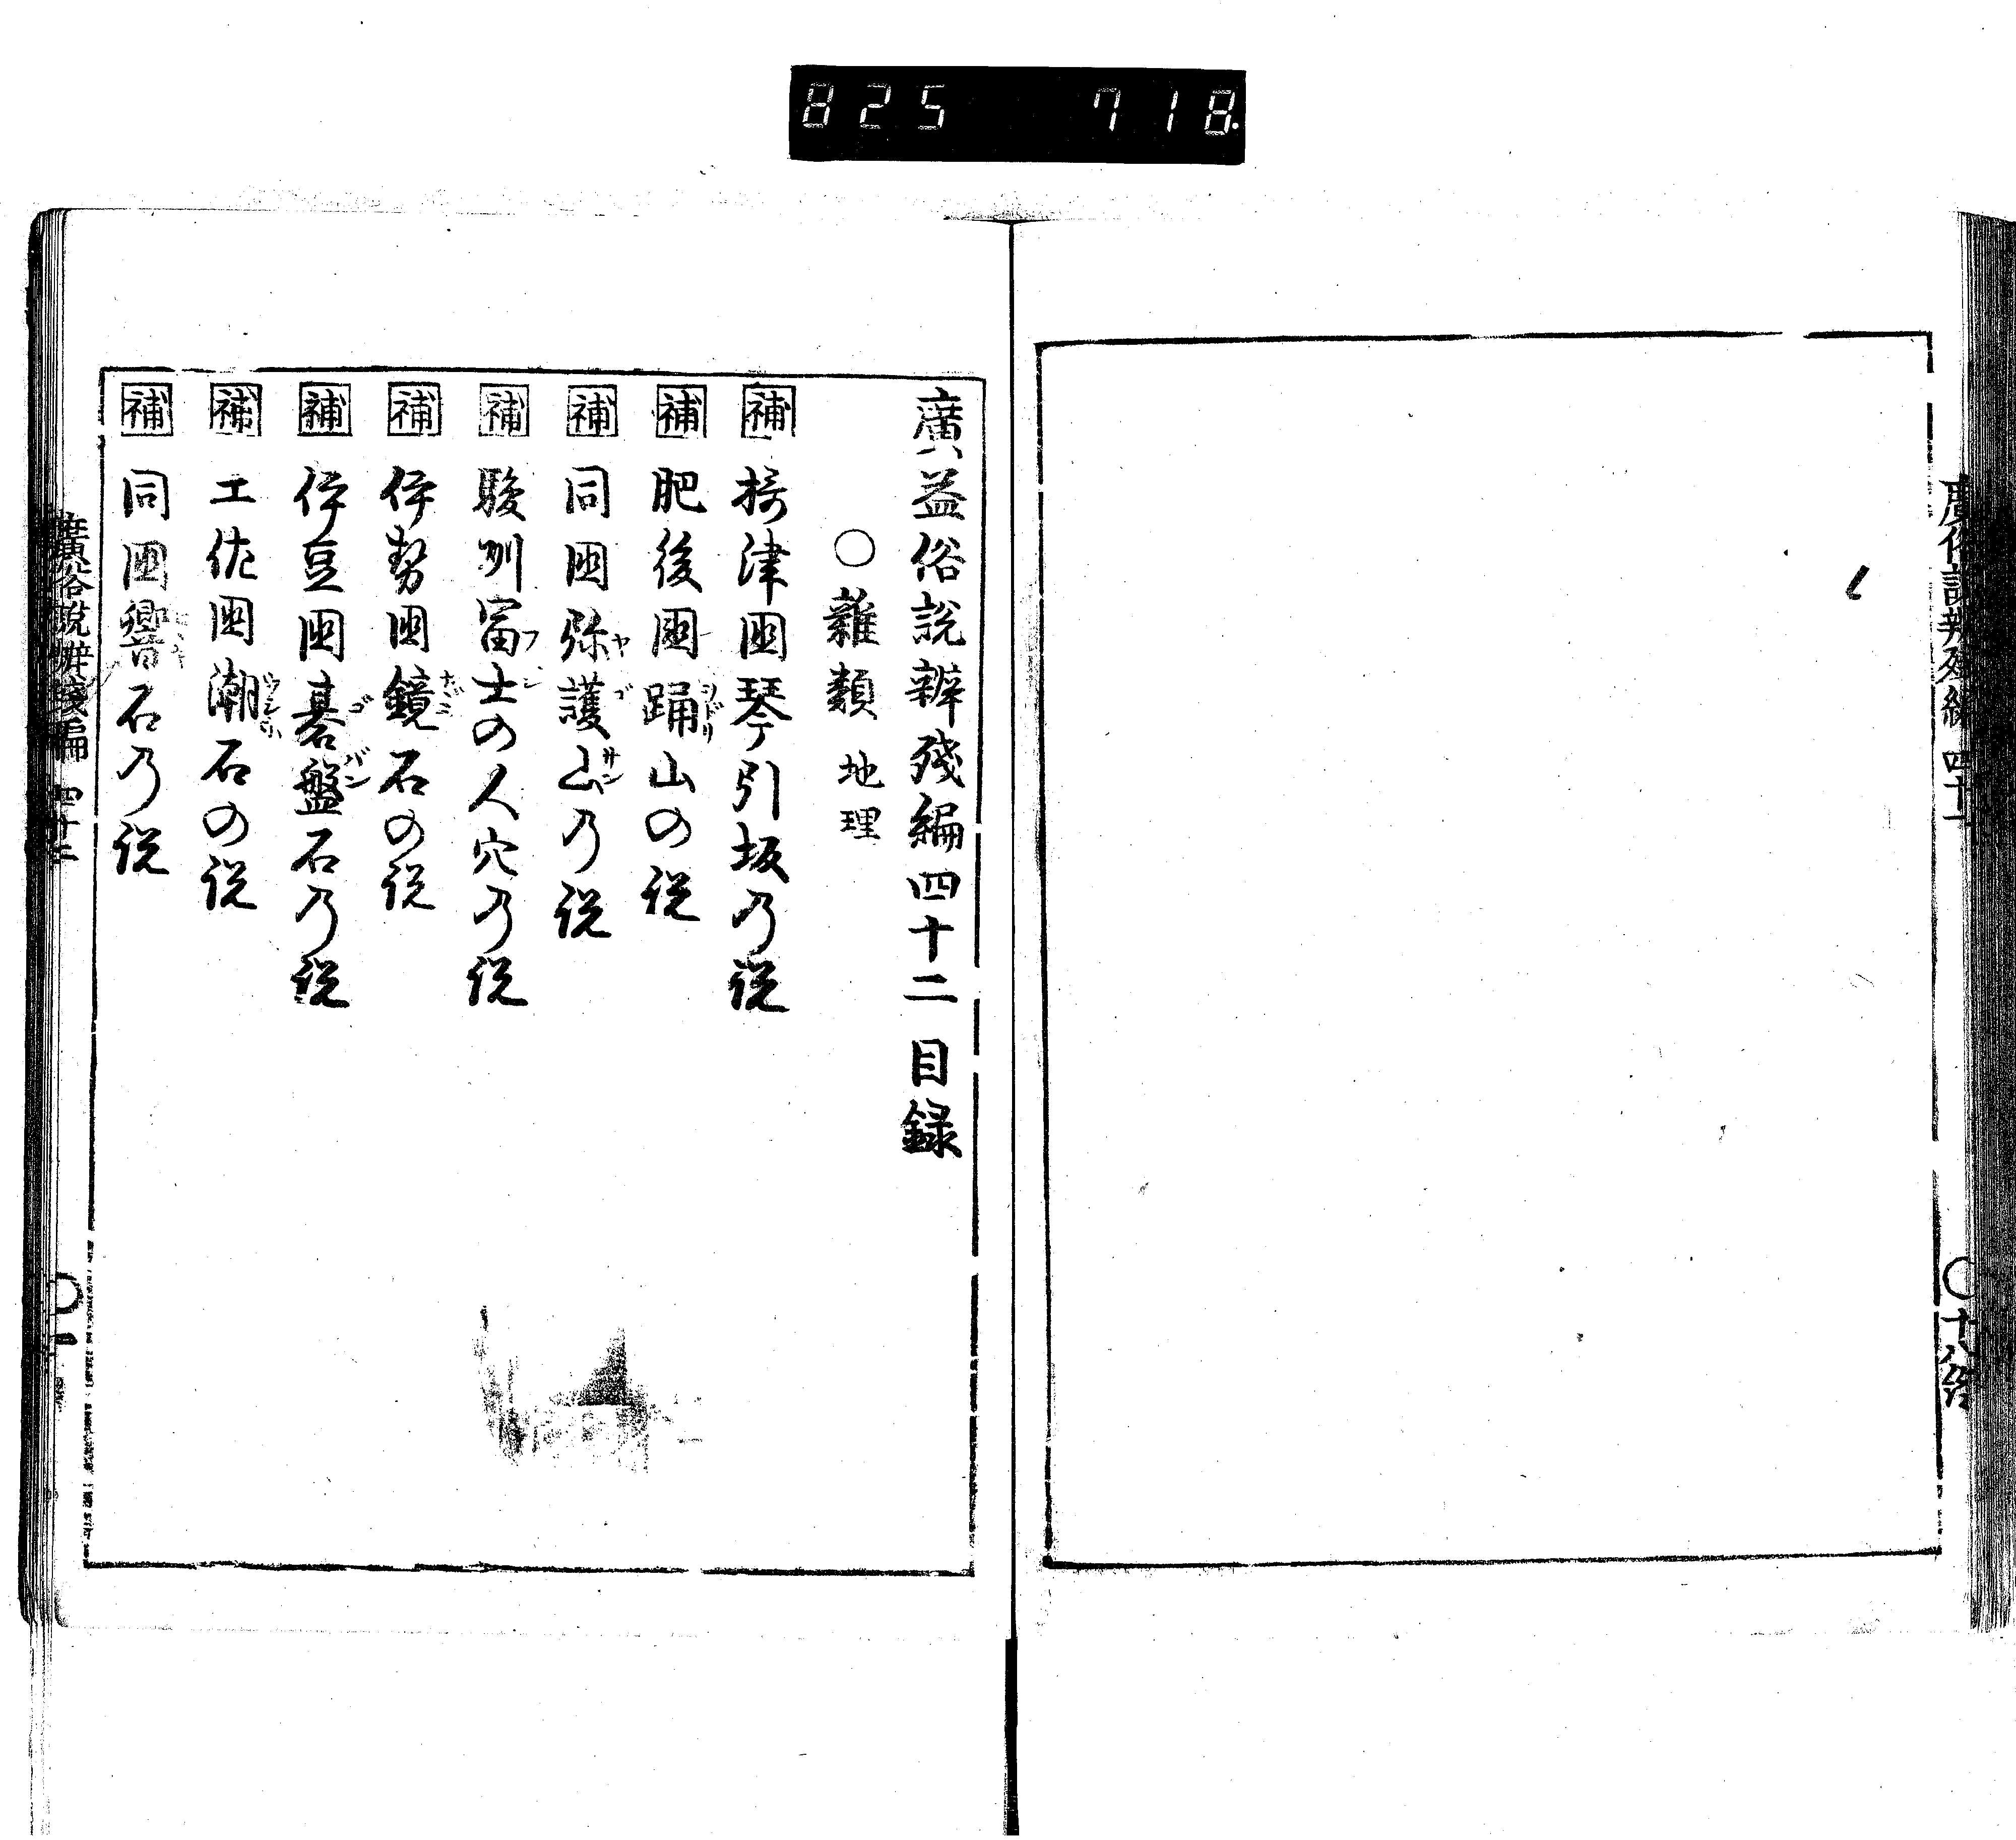 825 718.
廣益俗說辨殘編四十二 目録
○雜類 地理
補 摂津国琴引坂乃説
補 肥後国踊山の説
補 同国弥護山乃説
補 駿州富士の人穴乃説
補 伊勢国鏡石の説
補 伊豆国碁盤石乃説
補 土佐国潮石の説
補 同国響石乃説
廣俗說辨殘編 四十二 ○一